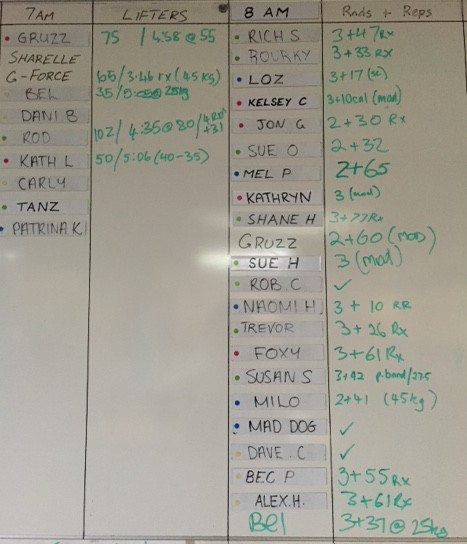 7AM LIFTERS 8 AM Rnds + Reps
GRUZZ 75 / 4:58 @ 55
SHARELLE
G-FORCE 65/3:46 rx (45kg)
BEL 35/ @ 25kg
DANI B
ROD 102/ 4:35@80/
KATH L 50/5:06 (40-35)
CARLY
TANZ
PATRINA K
RICH S 3+47 Rx
ROURKY 3+33 Rx
LOZ 3+17
KELSEY C 3+10cal (mod)
JON G 2+30 Rx
SUE O 2+32
MEL P 2+65
KATHRYN 3 (mod)
SHANE H 3+77Rx
GRUZZ 2+60 (mod)
SUE H 3 (mod)
ROB.C ✓
NAOMI H 3 + 10 RR
TREVOR 3+26 Rx
FOXY 3+61 Rx
SUSAN S 3+42 p.band/27.5
MILO 2+41 (45kg)
MAD DOG ✓
DAVE.C ✓
BEC P 3+55 Rx
ALEX.H. 3+61Rx
Bel 3+37 @ 25kg